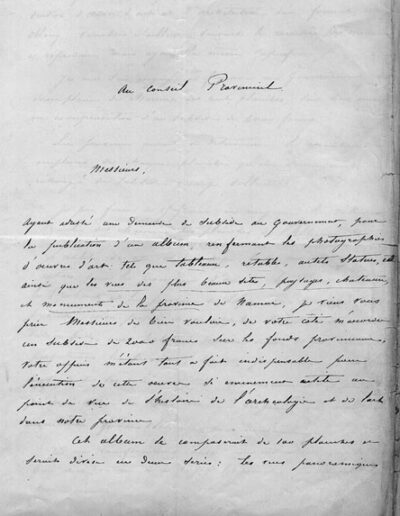 Au Conseil Provincial
Messieurs,
Ayant adressé une demande de subside au Gouvernement, pour
la publication d'un album, renfermant les photographies
d'œuvres d'art tels que tableaux, retables, autels Statues,
ainsi que les vues des plus beaux sites, paysages, chateaux
et monuments de la province de Namur, je viens vous
prier Messieurs de bien vouloir, de votre coté m'accorder
un Subside de 2000 francs sur les fonds provinciaux,
votre appui m'étant tout a fait indispensable pour
l'exécution de cette œuvre si eminement utile au
point de vue de l'histoire de l'archeologie et de l'art
dans notre province
Cet album se composerait de 100 planches et
serait divisé en deux series: les vues panoramiques